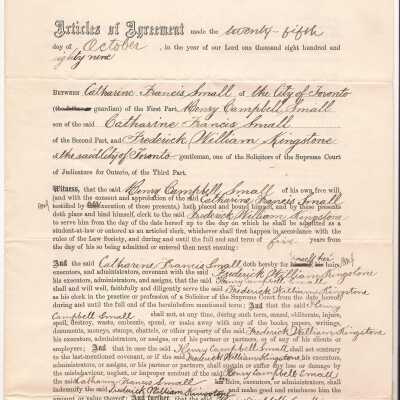 Articles of Agreement made the twenty-fifth
day of October, in the year of our Lord one thousand eight hundred and
eighty nine
BETWEEN Catharine Francis Small of the City of Toronto
guardian) of the First Part, Henry Campbell Small
son of the said Catharine Francis Small
of the Second Part, and Frederick William Kingstone
of the said City of Toronto gentleman, one of the Solicitors of the Supreme Court
of Judicature for Ontario, of the Third Part.
Witness, that the said Henry Campbell Small of his own free will
(and with the consent and approbation of the said Catharine Francis Small
testified by execution of these presents,) hath placed and bound himself, and by these presents
doth place and bind himself, clerk to the said Frederick William Kingstone
to serve him from the day of the date hereof up to the day on which he shall be admitted as a
student-at-law or entered as an articled clerk, whichever shall first happen in accordance with the
rules of the Law Society, and during and until the full end and term of five years from
the day of his so being admitted or entered then next ensuing:
And the said Catharine Francis Small doth hereby for herself her heirs,
executors, and administrators, covenant with the said Frederick William Kingstone his
executors, administrators, and assigns, that the said Henry Campbell Small
shall and will well, faithfully and diligently serve the said Frederick William Kingstone
as his clerk in the practice or profession of a Solicitor of the Supreme Court from the date hereof
during and until the full end of the hereinbefore mentioned term: And that the said Henry
Campbell Small shall not, at any time, during such term, cancel, obliterate, injure,
spoil, destroy, waste, embezzle, spend, or make away with any of the books, papers, writings,
documents, moneys, stamps, chattels, or other property of the said Frederick William Kingstone
his executors, administrators, or assigns, or of his partner or partners, or of any of his clients or
employers: And that in case the said Henry Campbell Small shall act contrary
to the last-mentioned covenant, or if the said Frederick William Kingstone, his executors,
administrators, or assigns, or his partner or partners, shall sustain or suffer any loss or damage by
the misbehaviour, neglect, or improper conduct of the said Henry Campbell Small
the said Catharine Francis Small her heirs, executors, or administrators, shall
indemnify the said Frederick William Kingstone and make good and reimburse him the
amount or value thereof: And further, that the said